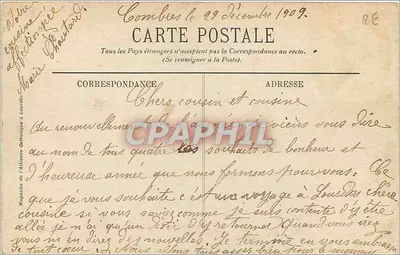 Combres le 29 décembre 1909.
Votre
cousine
affectionnée
Marie
CARTE POSTALE
Tous les Pays étrangers n'acceptent pas la Correspondance au recto.
(Se renseigner à la Poste).
CORRESPONDANCE ADRESSE
Chers cousin et cousine
Au renouvellement de l'année je viens vous dire
au nom de tous quatre les souhaits de bonheur et
d'heureuse année que nous formons pour vous. Ce
que je vous souhaite c'est un voyage à Lourdes chère
cousine si vous saviez comme je suis contente d'y être
allé je n'ai qu'un désir d'y retourner Quand vous irez
vous m'en direz des nouvelles. Je termine en vous embrassant
de tout cœur. Nous allons tous assez bien pour le moment
CPARAMA